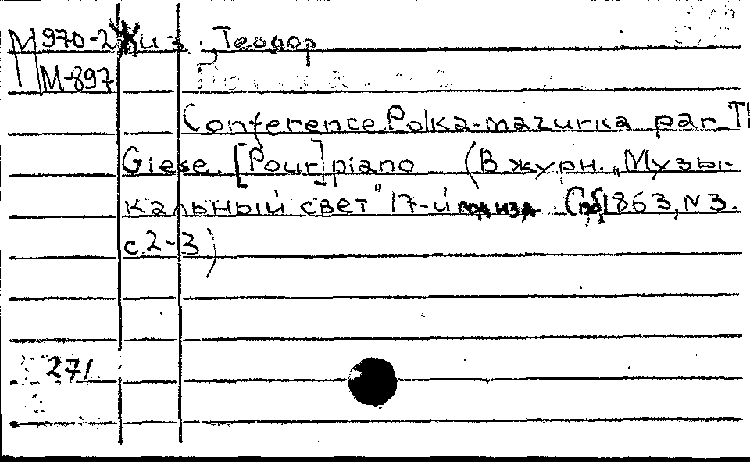 М 970-2 Жиз, Теодор
М-897
Conference Polka-mazurka par Th
Giese. [Pour] piano (В журн. „Музы-
кальный свет" 17-й год изд. Спб 1863, N 3.
с. 2-3)
271